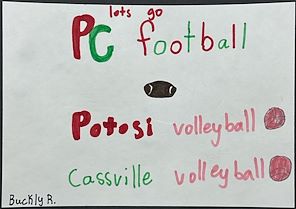 lets go
PC football
Potosi volleyball
Cassville volleyball
Buckly R.